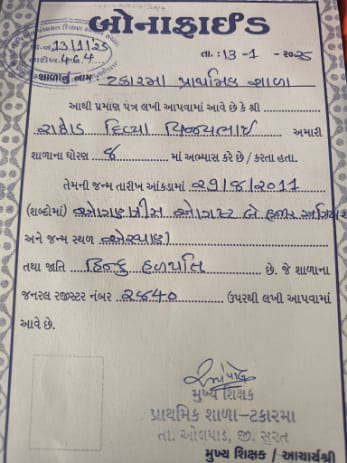 બોનાફાઈડ
તા. : 13-1-2025
13/1/25
શાળાનું નામ : ટકારમા પ્રાથમિક શાળા
આથી પ્રમાણ પત્ર લખી આપવામાં આવે છે કે શ્રી
રાઠોડ દિવ્યા વિજયભાઈ અમારી
શાળાના ધોરણ ૮ માં અભ્યાસ કરે છે / કરતા હતા.
તેમની જન્મ તારીખ આંકડામાં ૨૯/૮/૨૦૧૧
(શબ્દોમાં) ઓગણત્રીસ ઓગસ્ટ બે હજાર અગિયાર
અને જન્મ સ્થળ
તથા જાતિ હિન્દુ હળપતિ છે. જે શાળાના
જનરલ રજીસ્ટર નંબર ૨૮૪૦ ઉપરથી લખી આપવામાં
આવે છે.
મુખ્ય શિક્ષક
પ્રાથમિક શાળા-ટકારમા
તા. ઓલપાડ, જી. સુરત
મુખ્ય શિક્ષક / આચાર્યશ્રી